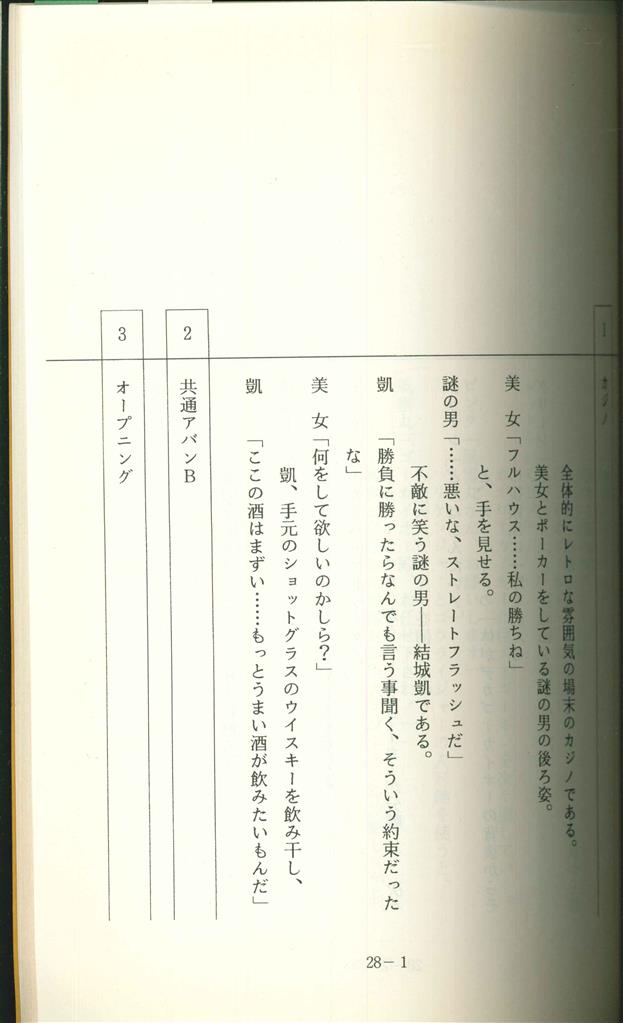 1
カジノ
全体的にレトロな雰囲気の場末のカジノである。
美女とポーカーをしている謎の男の後ろ姿。
美　女「フルハウス……私の勝ちね」
と、手を見せる。
謎の男「……悪いな、ストレートフラッシュだ」
不敵に笑う謎の男――結城凱である。
凱　　「勝負に勝ったらなんでも言う事聞く、そういう約束だった
な」
美　女「何をして欲しいのかしら？」
凱、手元のショットグラスのウイスキーを飲み干し、
凱　　「ここの酒はまずい……もっとうまい酒が飲みたいもんだ」
2
共通アバンB
3
オープニング
28－1